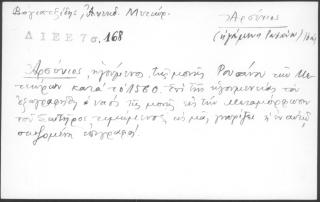 Βογιατζίδης, Ἀνέκδ. Μετεώρ.
Ἀρσένιος
Δ Ι Ε Ε 7ος. 168
(ἡγούμενος Ρουσάνου) 16 αἰ.
Ἀρσένιος, ἡγούμενος τῆς μονῆς Ρουσάνου τῶν Με-
τεώρων κατὰ τὸ 1560. Ἐπὶ τῆς ἡγουμενίας του
ἐζωγραφήθη ὁ ναὸς τῆς μονῆς εἰς τὴν μεταμόρφωσιν
τοῦ Σωτῆρος τιμώμενος ὡς μᾶς γνωρίζει ἡ ἐν αὐτῷ
σωζομένη ἐπιγραφή.